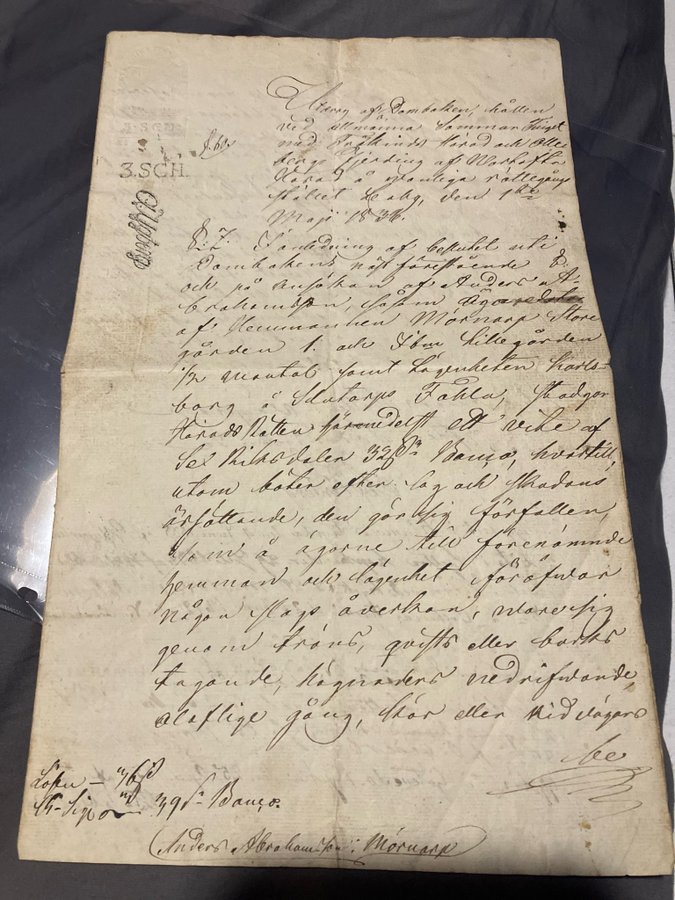 3.SCH.
Utdrag af Domboken, hållen
vid allmänna Sommar Tinget
med Frökinds Härad och Ölle-
bergs Fjerding af Wartofta
Härad å vanliga rättegångs
stället Leaby, den 1sta
Maji 1838.
I anledning af beslutet uti
Dombokens näst föregående §
och på ansökan af Anders A-
brahamsson, såsom ägare
af Hemmanen Mörnarp Store
gården 1 och Ibm Lillegården
1/2 mantal samt Lägenheten Carls-
borg å Slutarps Fahla, stadgar
Härads Rätten härmedelst ett vite af
Sex Riksdaler 32 sk Banco, hvartill,
utom böter efter lag och skadans
ersättande, den gör sig förfallen,
som å ägorne till förenämnde
hemman och lägenhet föröfwar
någon slags åverkan, ware sig
genom träns, qvists eller barks
tagande, hägnaders nedrifwande,
olaflige gång, kör eller ridvägars
be
Lösen — 36 sk
39 sk Banco.
Anders Abrahamsson i Mörnarp